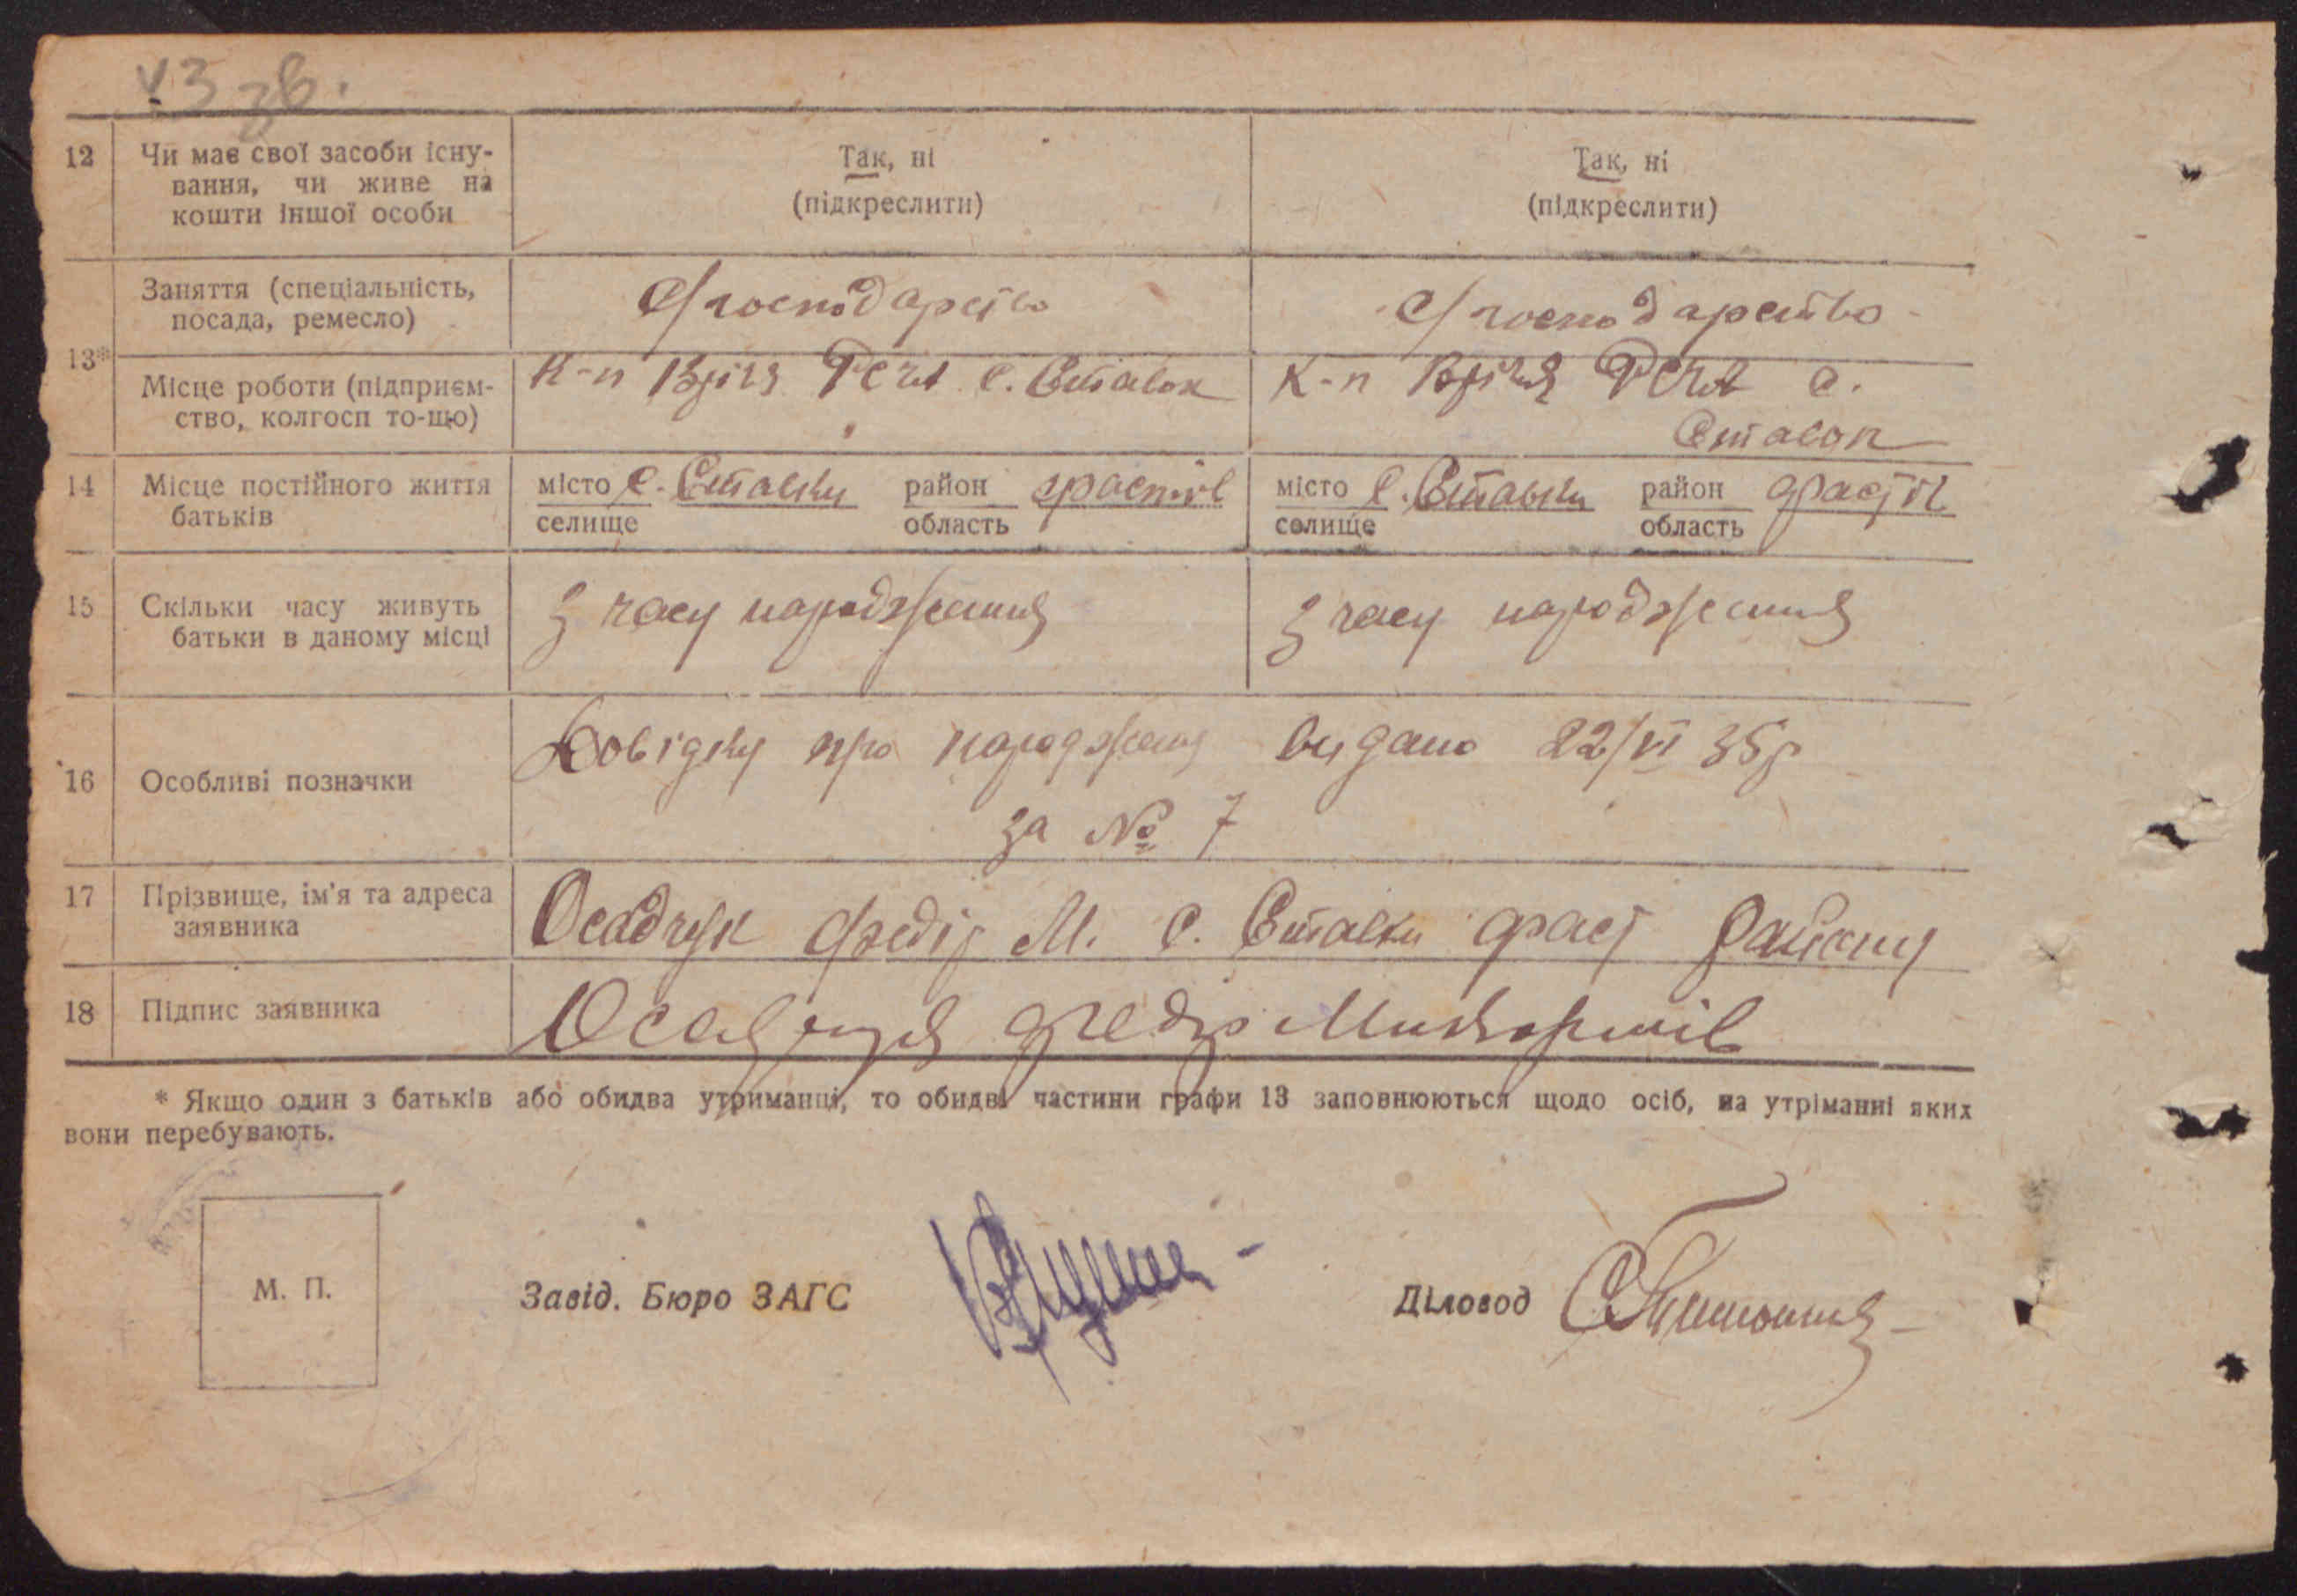 зв.
12 Чи має свої засоби існу- Так, ні Так, ні
вання, чи живе на (підкреслити) (підкреслити)
кошти іншої особи
Заняття (спеціальність, С/господарство С/господарство
посада, ремесло)
13*
Місце роботи (підприєм- К-п с. Ставок К-п с.
ство, колгосп то-що) Ставок
14 Місце постійного життя місто с. Ставки район Фастів місто с. Ставки район Фастів
батьків селище область селище область
15 Скільки часу живуть з часу народження з часу народження
батьки в даному місці
16 Особливі позначки Довідку про народження видано 22/VI 35р
за № 7
17 Прізвище, ім'я та адреса Осадчук Федір М. с. Ставки Фаст району
заявника
18 Підпис заявника
* Якщо один з батьків або обидва утриманці, то обидві частини графи 13 заповнюються щодо осіб, на утріманні яких
вони перебувають.
М. П. Завід. Бюро ЗАГС Діловод